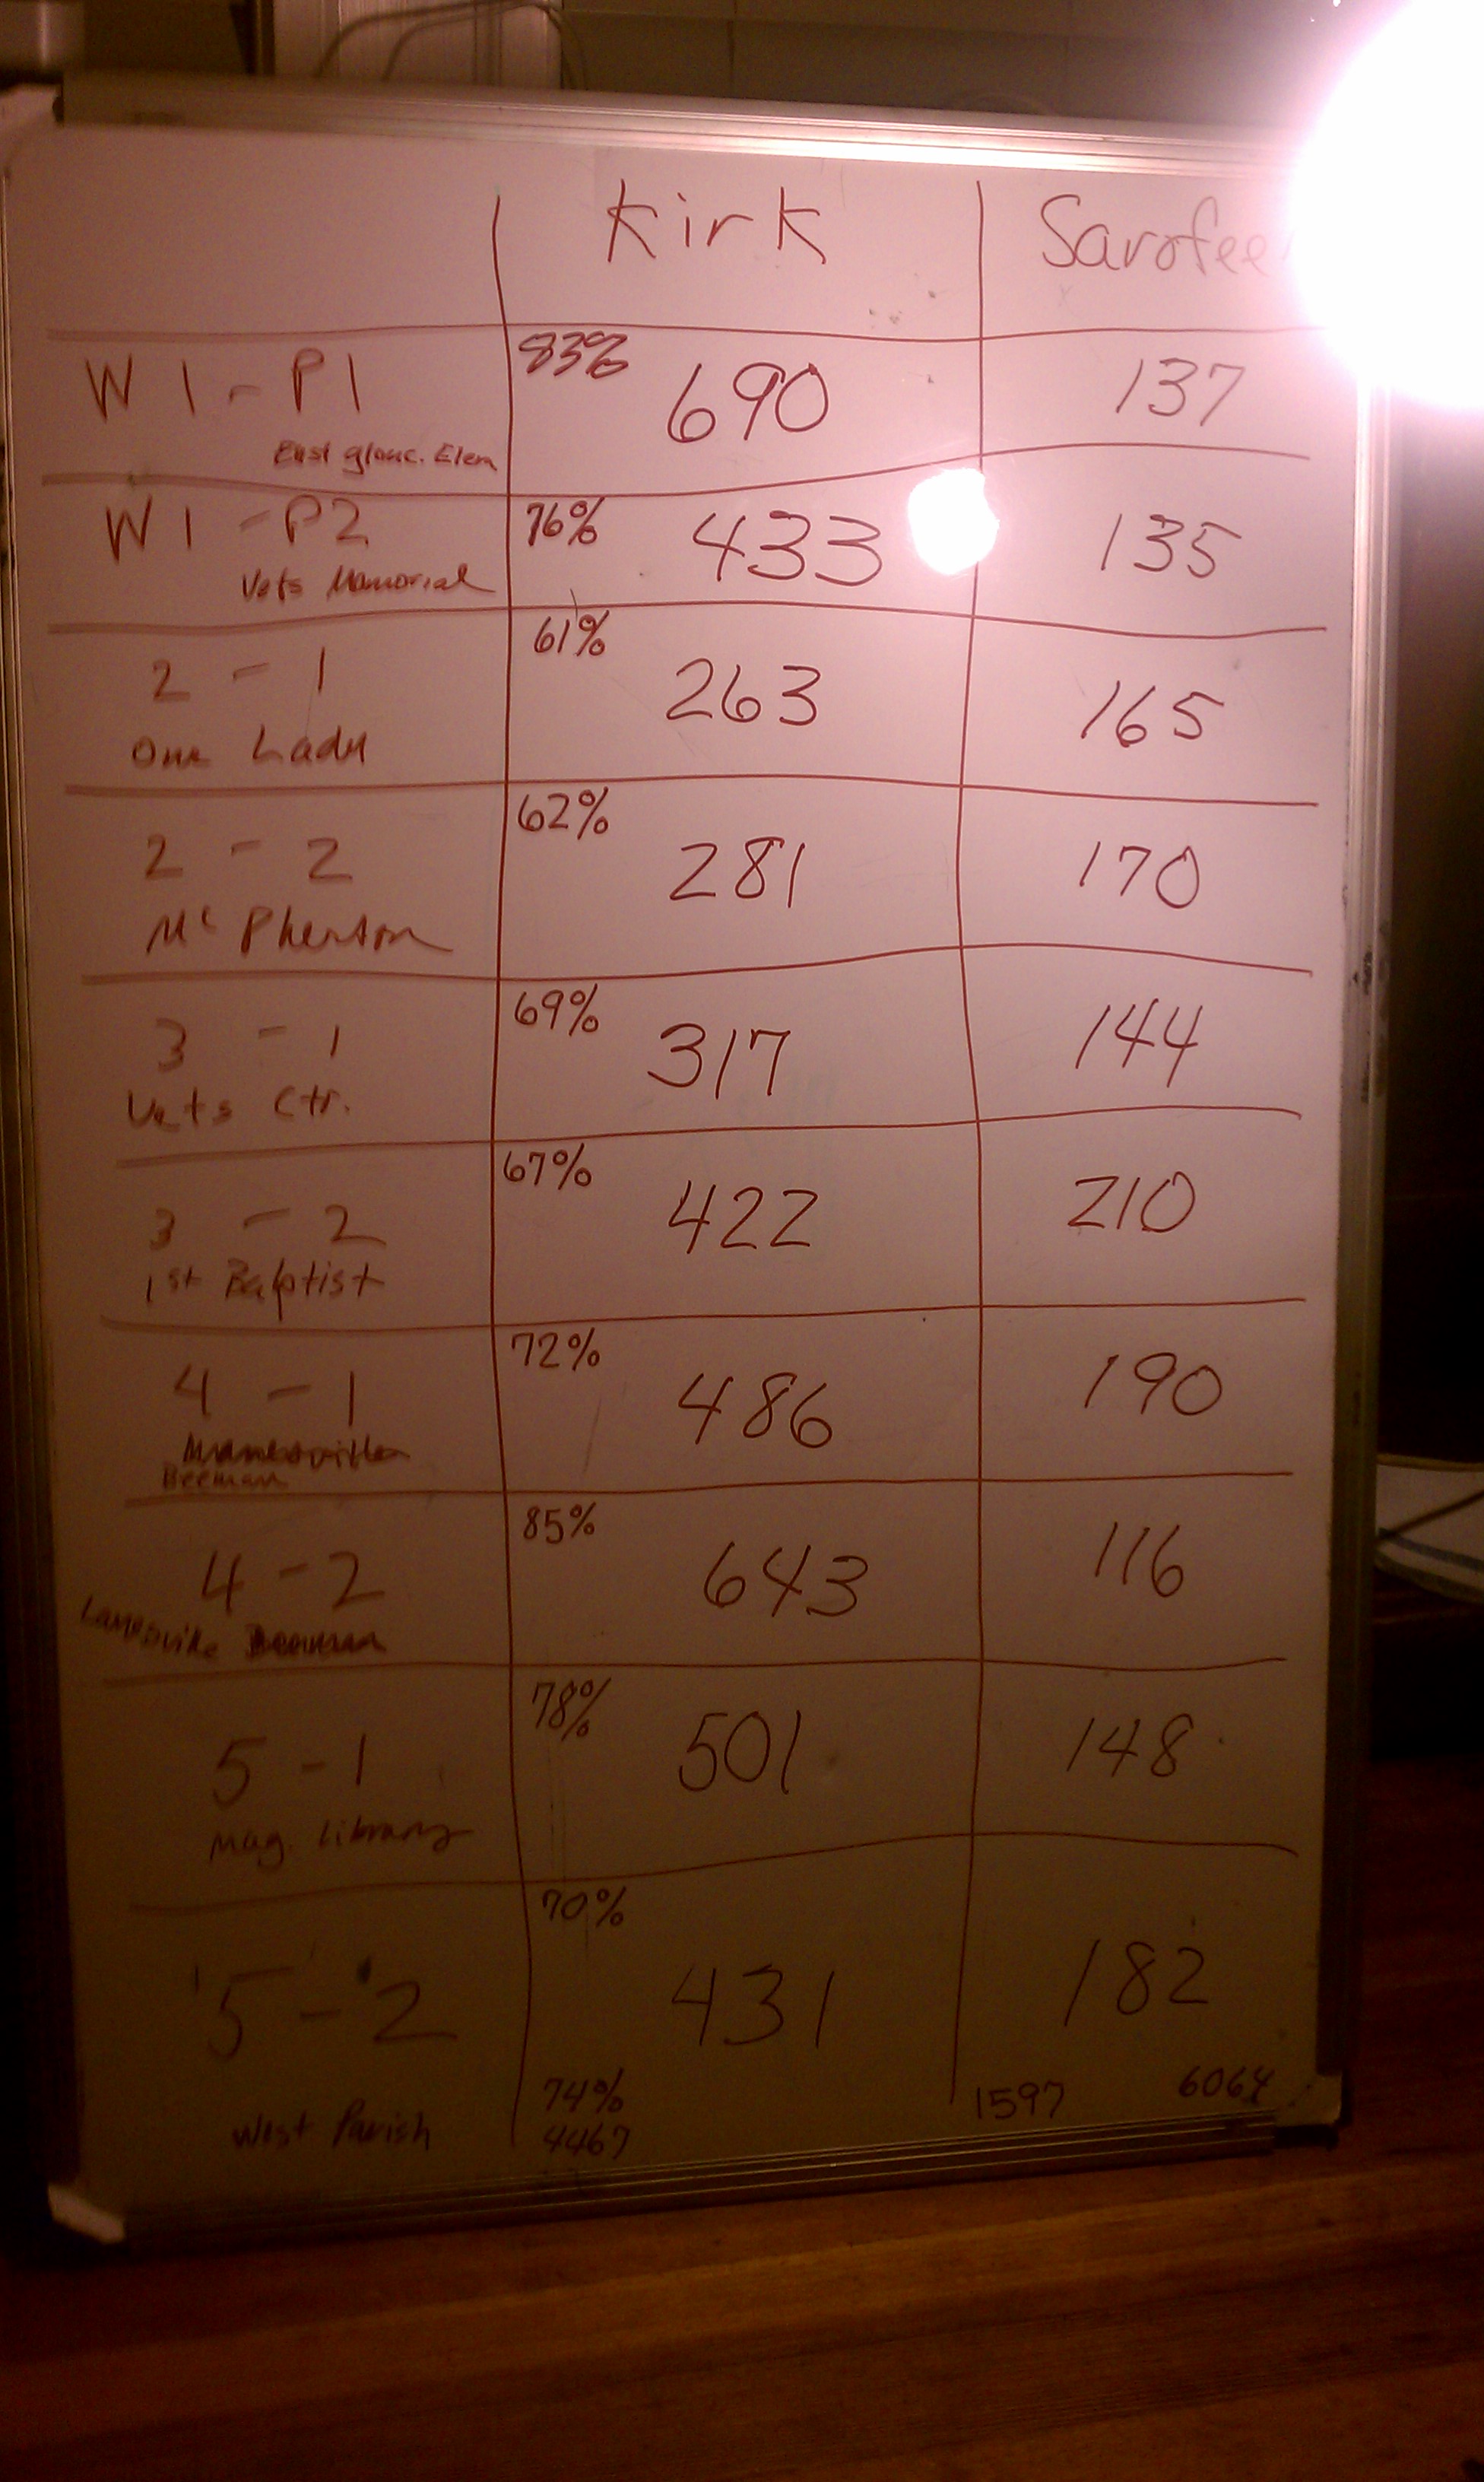 Kirk Sarofee
W1-P1 83% 690 137
East glouc. Elem
W1-P2 76% 433 135
Vets Memorial
2-1 61% 263 165
Our Lady
2-2 62% 281 170
McPherson
3-1 69% 317 144
Vets Ctr.
3-2 67% 422 210
1st Baptist
4-1 72% 486 190
Beeman
4-2 85% 643 116
Lanesville
5-1 78% 501 148
Mag. Library
5-2 70% 431 182
West Parish
74%
4467 1597 6064